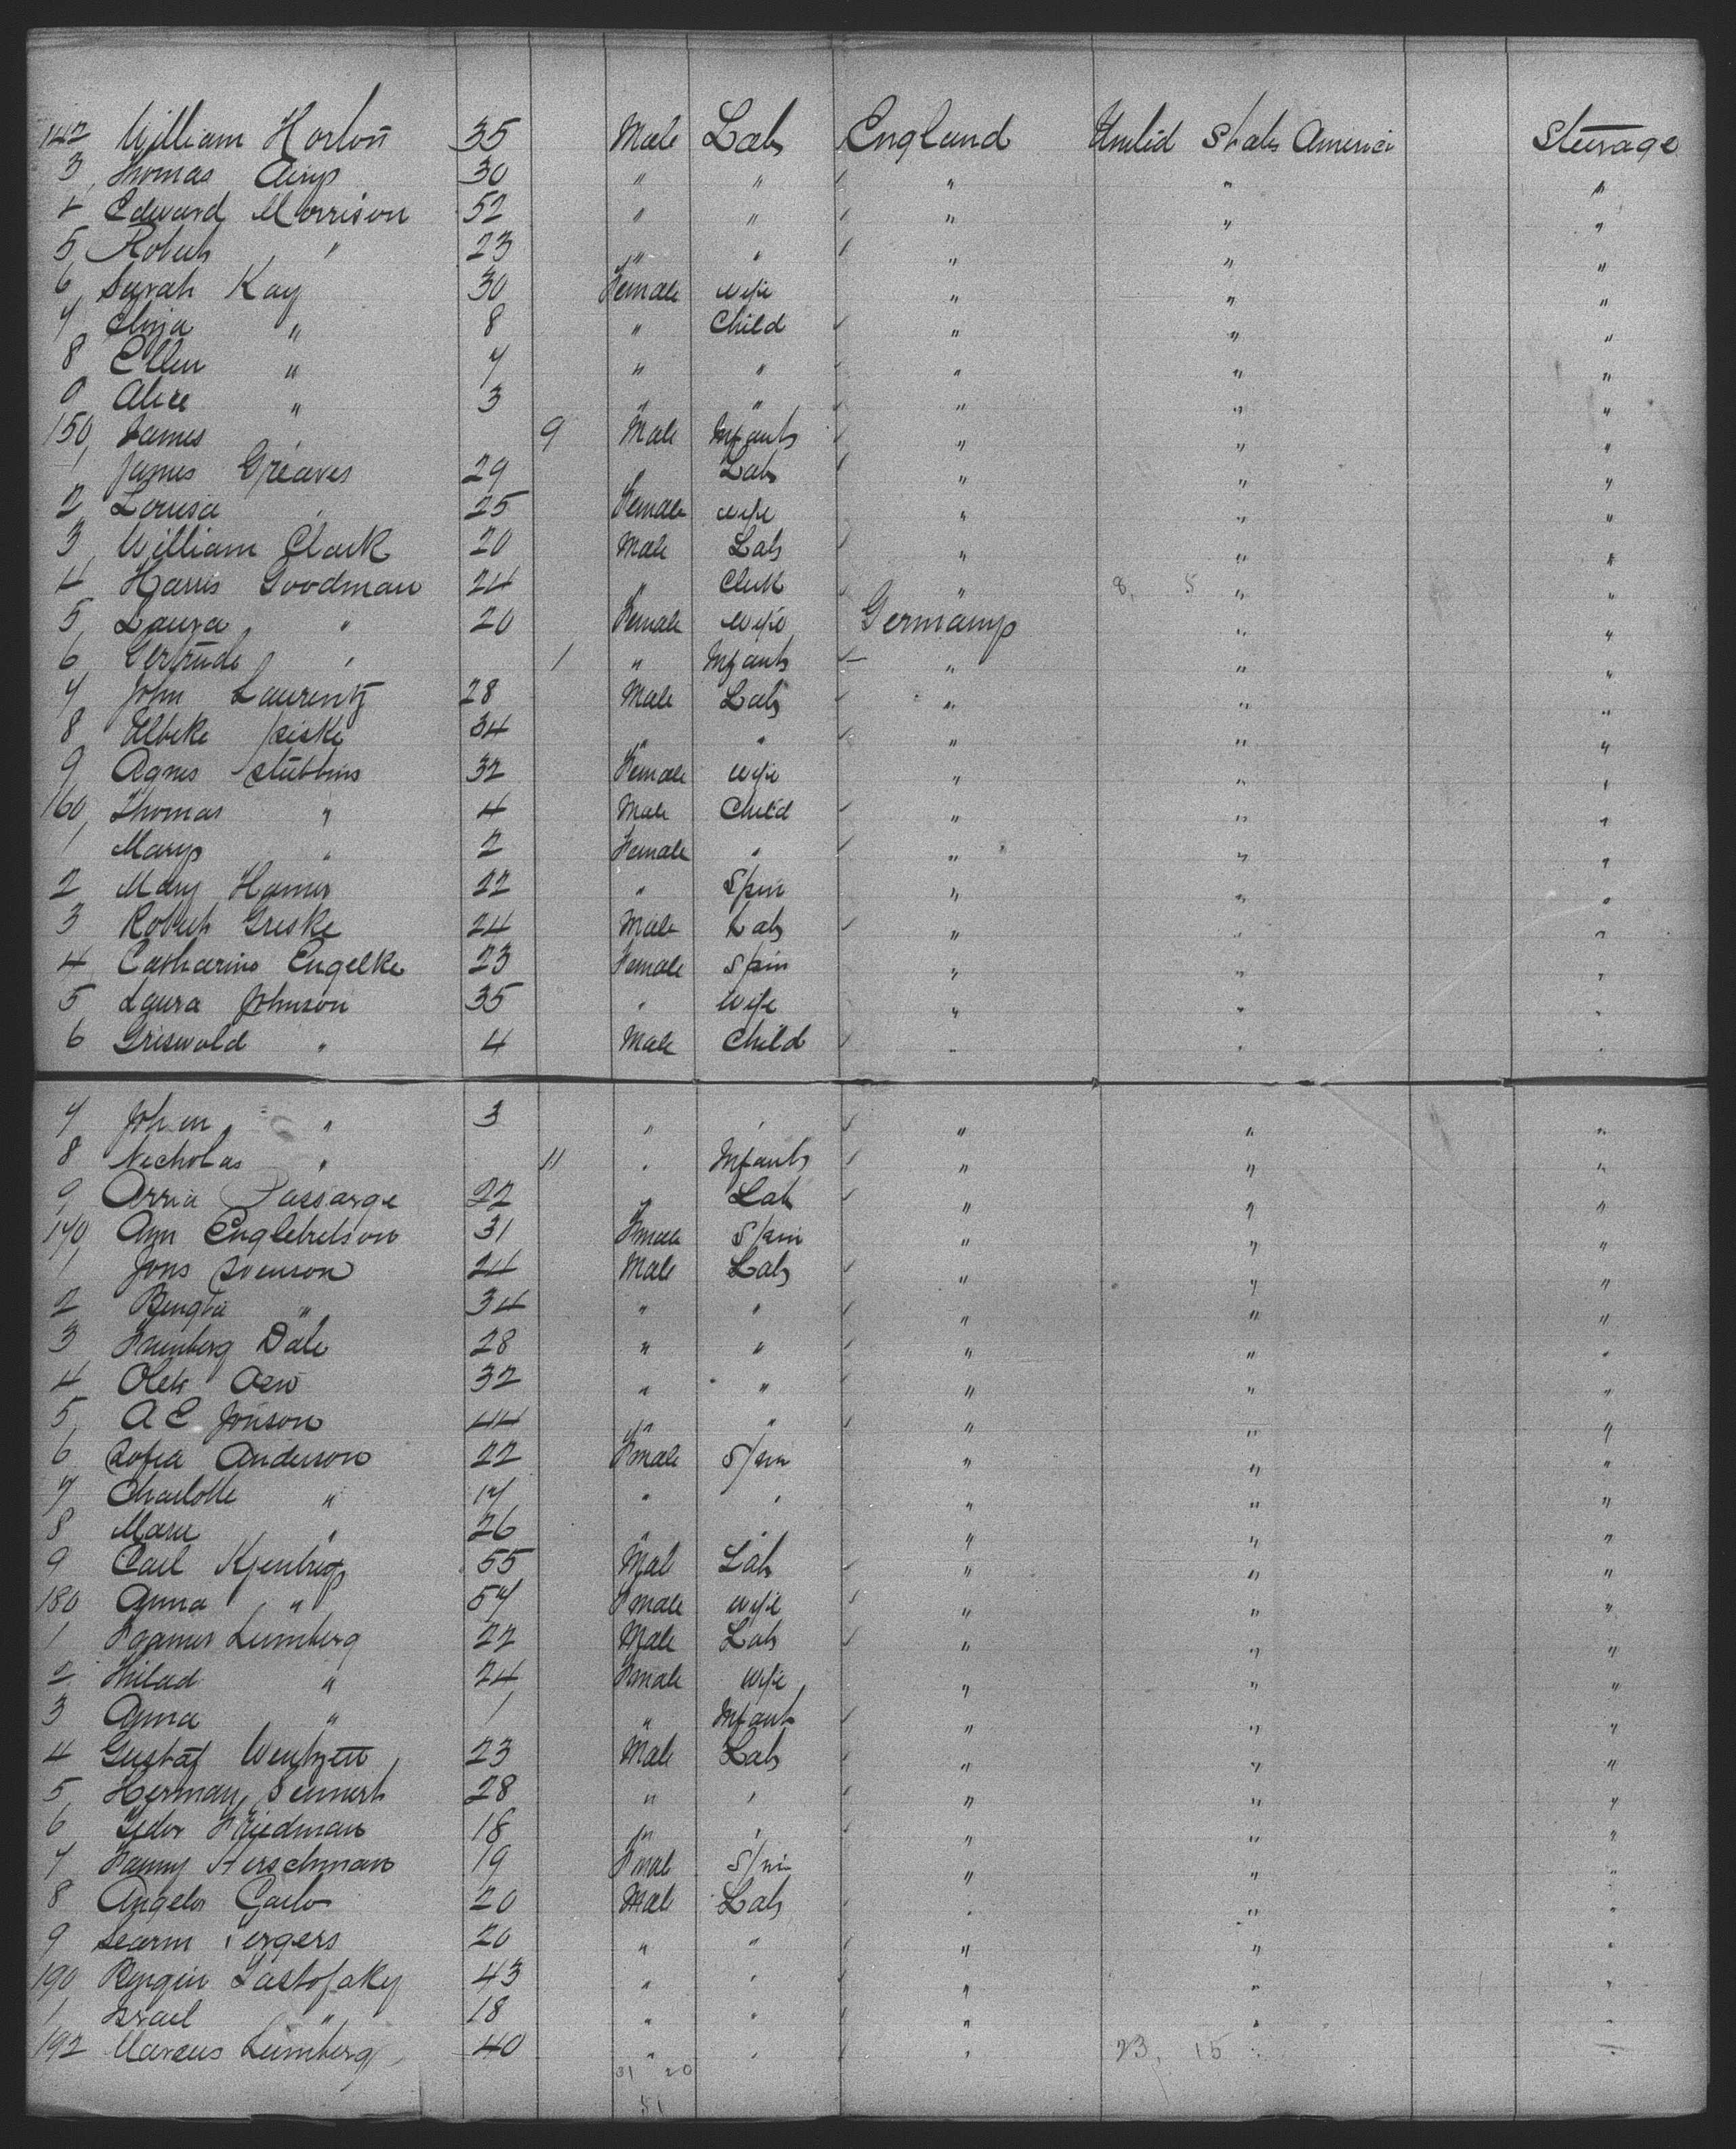 142 William Horton 35 Male Lab England United States America Steerage
3 Thomas 30 " " " " "
4 Edward Morrison 52 " " " " "
5 Robert " 23 " " " " "
6 Sarah Kay 30 Female wife " " "
7 Eliza " 8 " Child " " "
8 Ellen " 7 " " " " "
9 Alice " 3 " " " " "
150 James 9 Male Infant " " "
1 James Greaves 29 Lab " " "
2 Louisa " 25 Female wife " " "
3 William Clark 20 Male Lab " " "
4 Harris Goodman 24 " Clerk " 8, 5 " "
5 Laura " 20 Female wife Germany " "
6 Gertrude " 1 " Infant " " "
7 John Laurentz 28 Male Lab " " "
8 34 " " " " "
9 Agnes Stubbins 32 Female wife " " "
160 Thomas " 4 Male Child " " "
1 Mary " 2 Female " " " "
2 Mary Hamer 22 " Spin " " "
3 Robert Greske 24 Male Lab " " "
4 Catharine Engelke 23 Female Spin " " "
5 Laura Johnson 35 " wife " " "
6 Griswold " 4 Male Child " " "
7 Johen " 3 " " " " "
8 Nicholas " 11 " Infant " " "
9 Passarge 22 " Lab " " "
170 Ann Englebretson 31 Female Spin " " "
1 Jons Svenson 24 Male Lab " " "
2 Bengta " 34 " " " " "
3 Dale 28 " " " " "
4 32 " " " " "
5 A C Jonson 44 " " " " "
6 Sofia Anderson 22 Female Spin " " "
7 Charlotte " 17 " " " " "
8 Marie " 26 " " " " "
9 Carl 55 Male Lab " " "
180 Anna " 57 Female wife " " "
1 Lumberg 22 Male Lab " " "
2 Hilad " 24 Female wife " " "
3 Anna " 1 " Infant " " "
4 Gustaf 23 Male Lab " " "
5 Herman 28 " " " " "
6 Friedman 18 " " " " "
7 Fanny Herschman 19 Female Spin " " "
8 Angelo Carlo 20 Male Lab " " "
9 20 " " " " "
190 43 " " " " "
1 Israel " 18 " " " " "
192 Marcus Lumberg 40 " " " 23, 15 " "
31 20
51